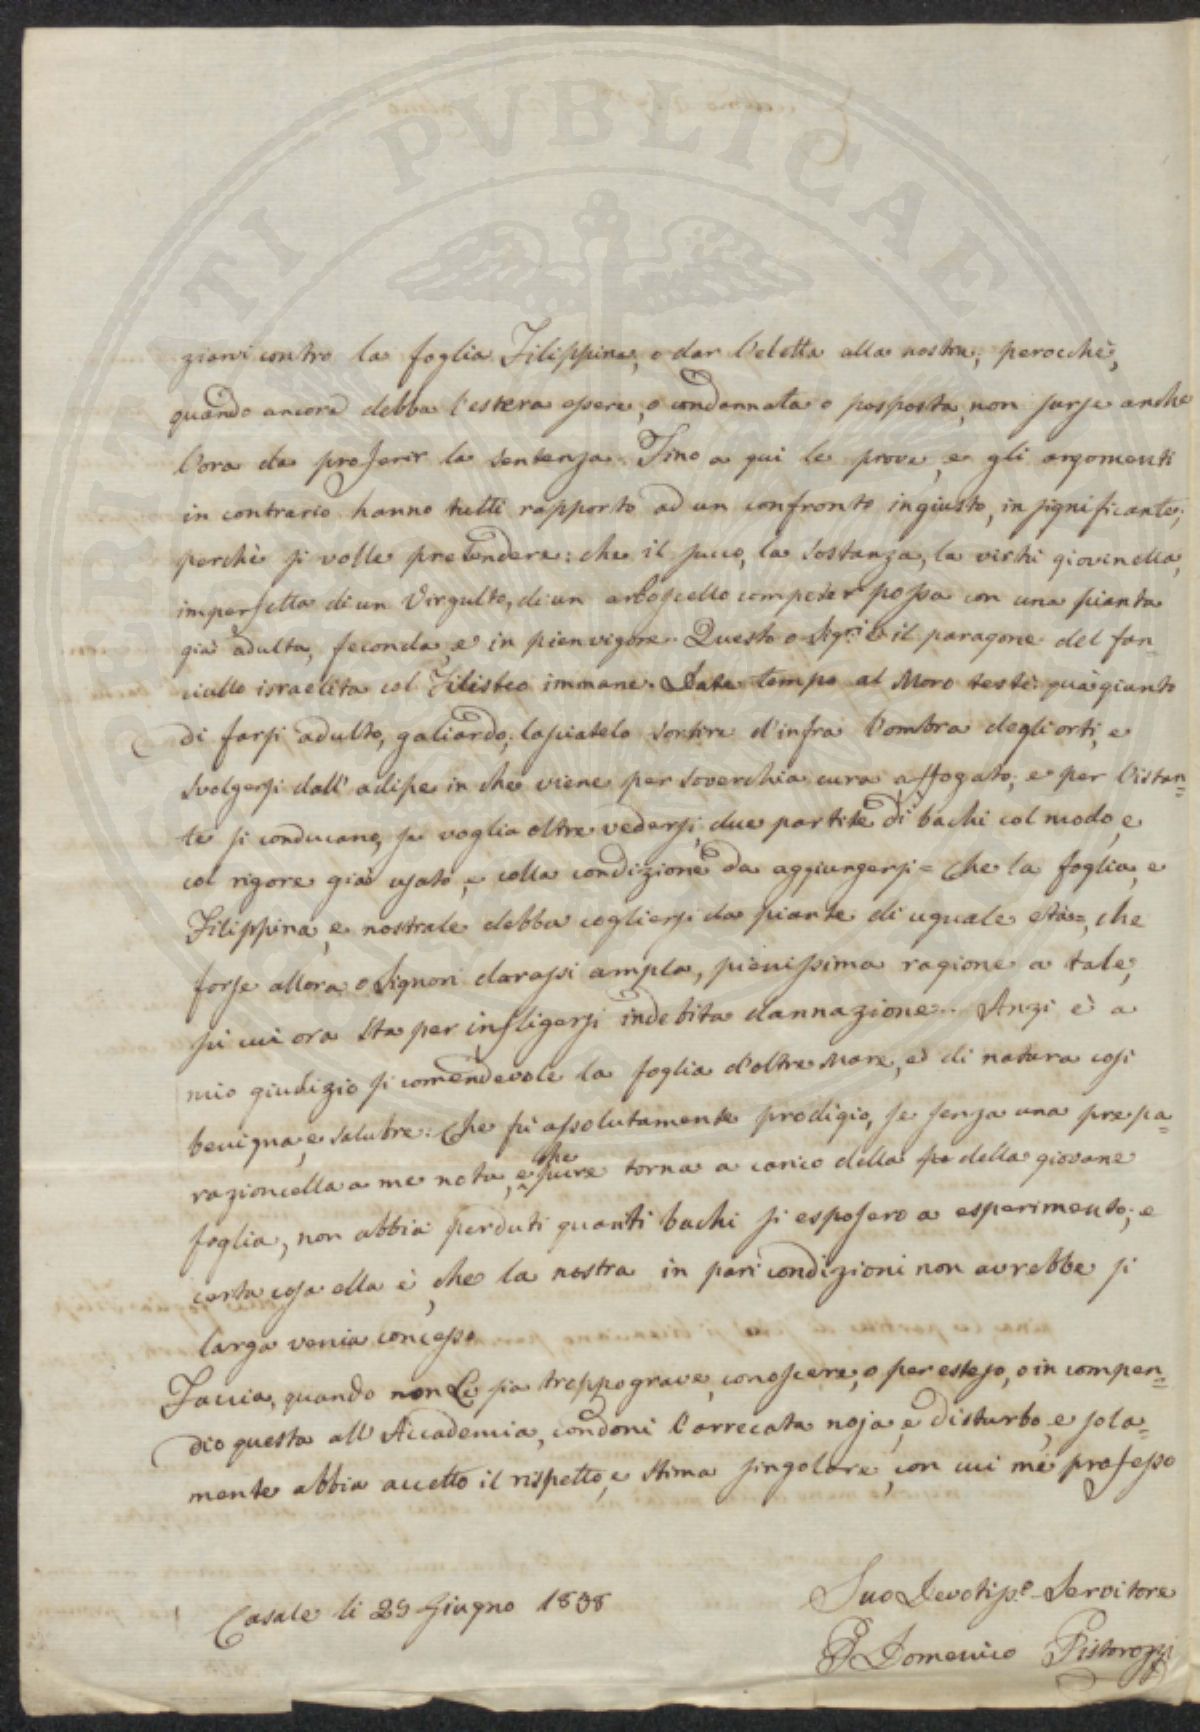 PROSPERITATI PUBLICAE
ziarvi contro la foglia Filippina, o dar l'eletta alla nostra, perocchè,
quando ancora debba l'estera essere, o condannata o posposta, non surse anche
l'ora da proferir la sentenza. Fino a qui le prove, e gli argomenti
in contrario hanno tutti rapporto ad un confronto ingiusto, insignificante;
perchè si volle pretendere: che il succo, la sostanza, la virtù giovinella,
imperfetta di un Virgulto, di un arboscello competer possa con una pianta
già adulta, feconda, e in pien vigore. Questo o Sig.ri è il paragone del fan=
ciullo israelita col Filisteo immane. Date tempo al Moro testè quà giunto
di farsi adulto, galiardo; lasciatelo sortire d'infra l'ombra degli orti, e
svolgersi dall'adipe in che viene per soverchia cura affogato; e per l'istan=
te si conducano, se voglia oltre vedersi, due partite di bachi col modo, e
col rigore già usato, e colla condizione da aggiungersi = Che la foglia, e
Filippina, e nostrale debba cogliersi da piante di uguale età =, che
forse allora o Signori darassi ampla, pienissima ragione a tale,
su cui ora sta per infligersi indebita dannazione. Anzi è a
mio giudizio sì comendevole la foglia d'oltre Mare, e di natura così
benigna, e salubre: Che fù assolutamente prodigio, se senza una prepa=
razioncella a me nota, e che pure torna a carico della fo della giovane
foglia, non abbia perduti quanti bachi si esposero a esperimento; e
certa cosa ella è, che la nostra in pari condizioni non avrebbe sì
larga venia concesso.
Faccia, quando non Le sia troppo grave, conoscere, o per esteso, o in compen=
dio questa all'Accademia, condoni l'arrecata noja, e disturbo, e sola=
mente abbia accetto il rispetto, e stima singolare, con cui me professo
Casale li 29 Giugno 1838
Suo Devotiss.o Servitore
D Domenico Pistorozzi